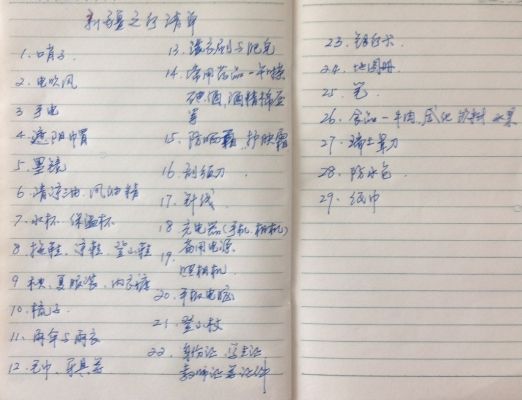 新疆之行清单
1. 口哨子
2. 电吹风
3 手电
4 遮阳帽
5 墨镜
6 清凉油、风油精
7 水杯 保温杯
8 拖鞋、凉鞋、登山鞋
9 秋、夏服装、内衣裤
10. 梳子
11. 雨伞与雨衣
12. 毛巾、牙具等
13. 洗衣刷与肥皂
14. 常用药品－
碘酒,酒精棉
等
15. 防晒霜,护肤霜
16 刮须刀
17. 针线
18 充电器(手机、相机)
备用电源
19. 照相机
20. 平板电脑
21. 登山杖
22. 身份证、学生证
教师证等证件
23. 银行卡
24. 地图册
25. 笔
26. 食品－牛肉, 饮料 水果
27. 瑞士军刀
28. 防水包
29. 纸巾